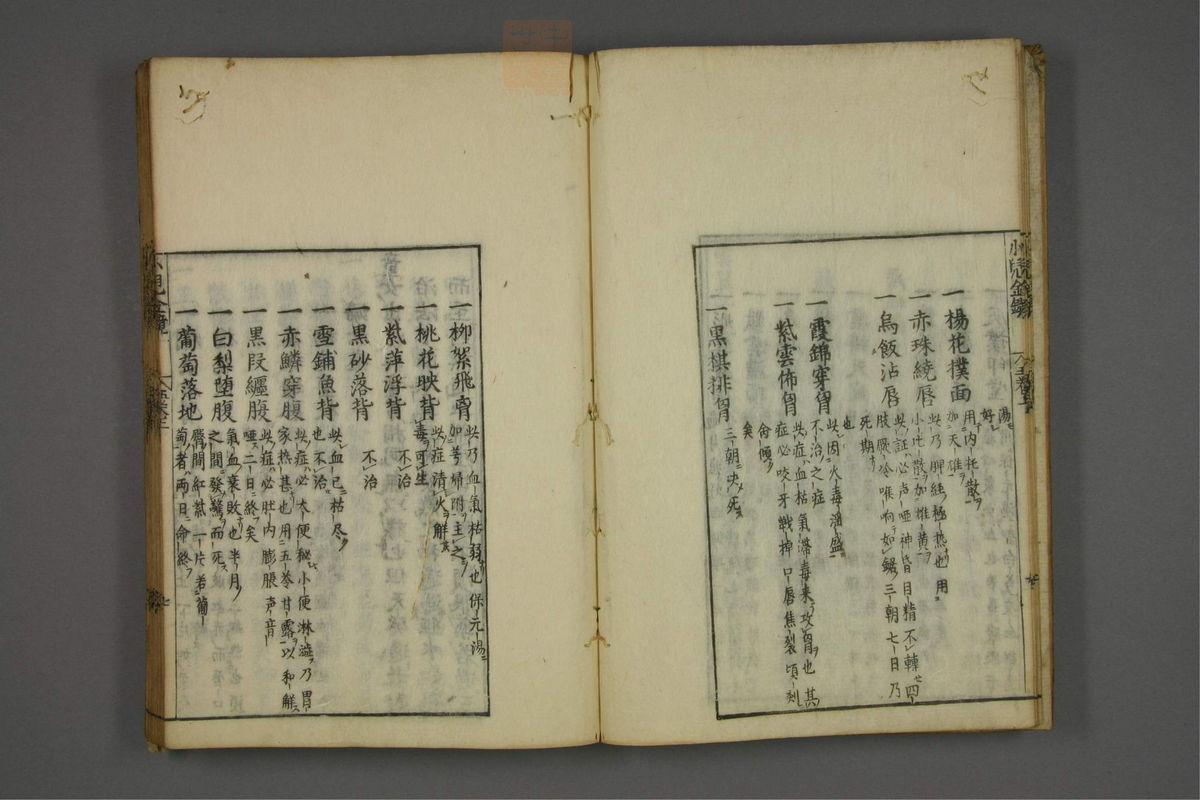 湯ニ
好シ
一楊花撲面
用内托散
加天雄
一赤珠繞唇
此乃脾経極熱也用
小柴散加雄黄
一烏飯沾唇
此証心声啞神昏目精不轉四
肢厥冷喉响如鋸三朝七日乃
死期
也
一霞錦穿胷
此因火毒滛盛
不治之症
一紫雲怖胷
此症血枯氣滞毒来攻胷也甚
症必咬牙戰掉口唇焦裂頃刻
命傾
矣
一黒棋排胷
三朝决死
一柳絮飛脊
此乃血氣枯弱也保元湯ニ
加芎婦附主之
一桃花映背
此症清火解
毒可生
一紫萍浮背
不治
一黒砂落背
不治
一雪鋪魚背
此血已枯尽
也不治
一赤鱗穿腹
此症必大便秘小便淋澁乃胃
家热甚也用五苓甘露以和解
一黒段纒腹
此症必肚内膨脹声音
啞二日終矣
一白梨堕腹
氣血衰敗也半月
之間發驚而死
一葡萄落地
臍間紅紫一片若葡
萄者両日命終